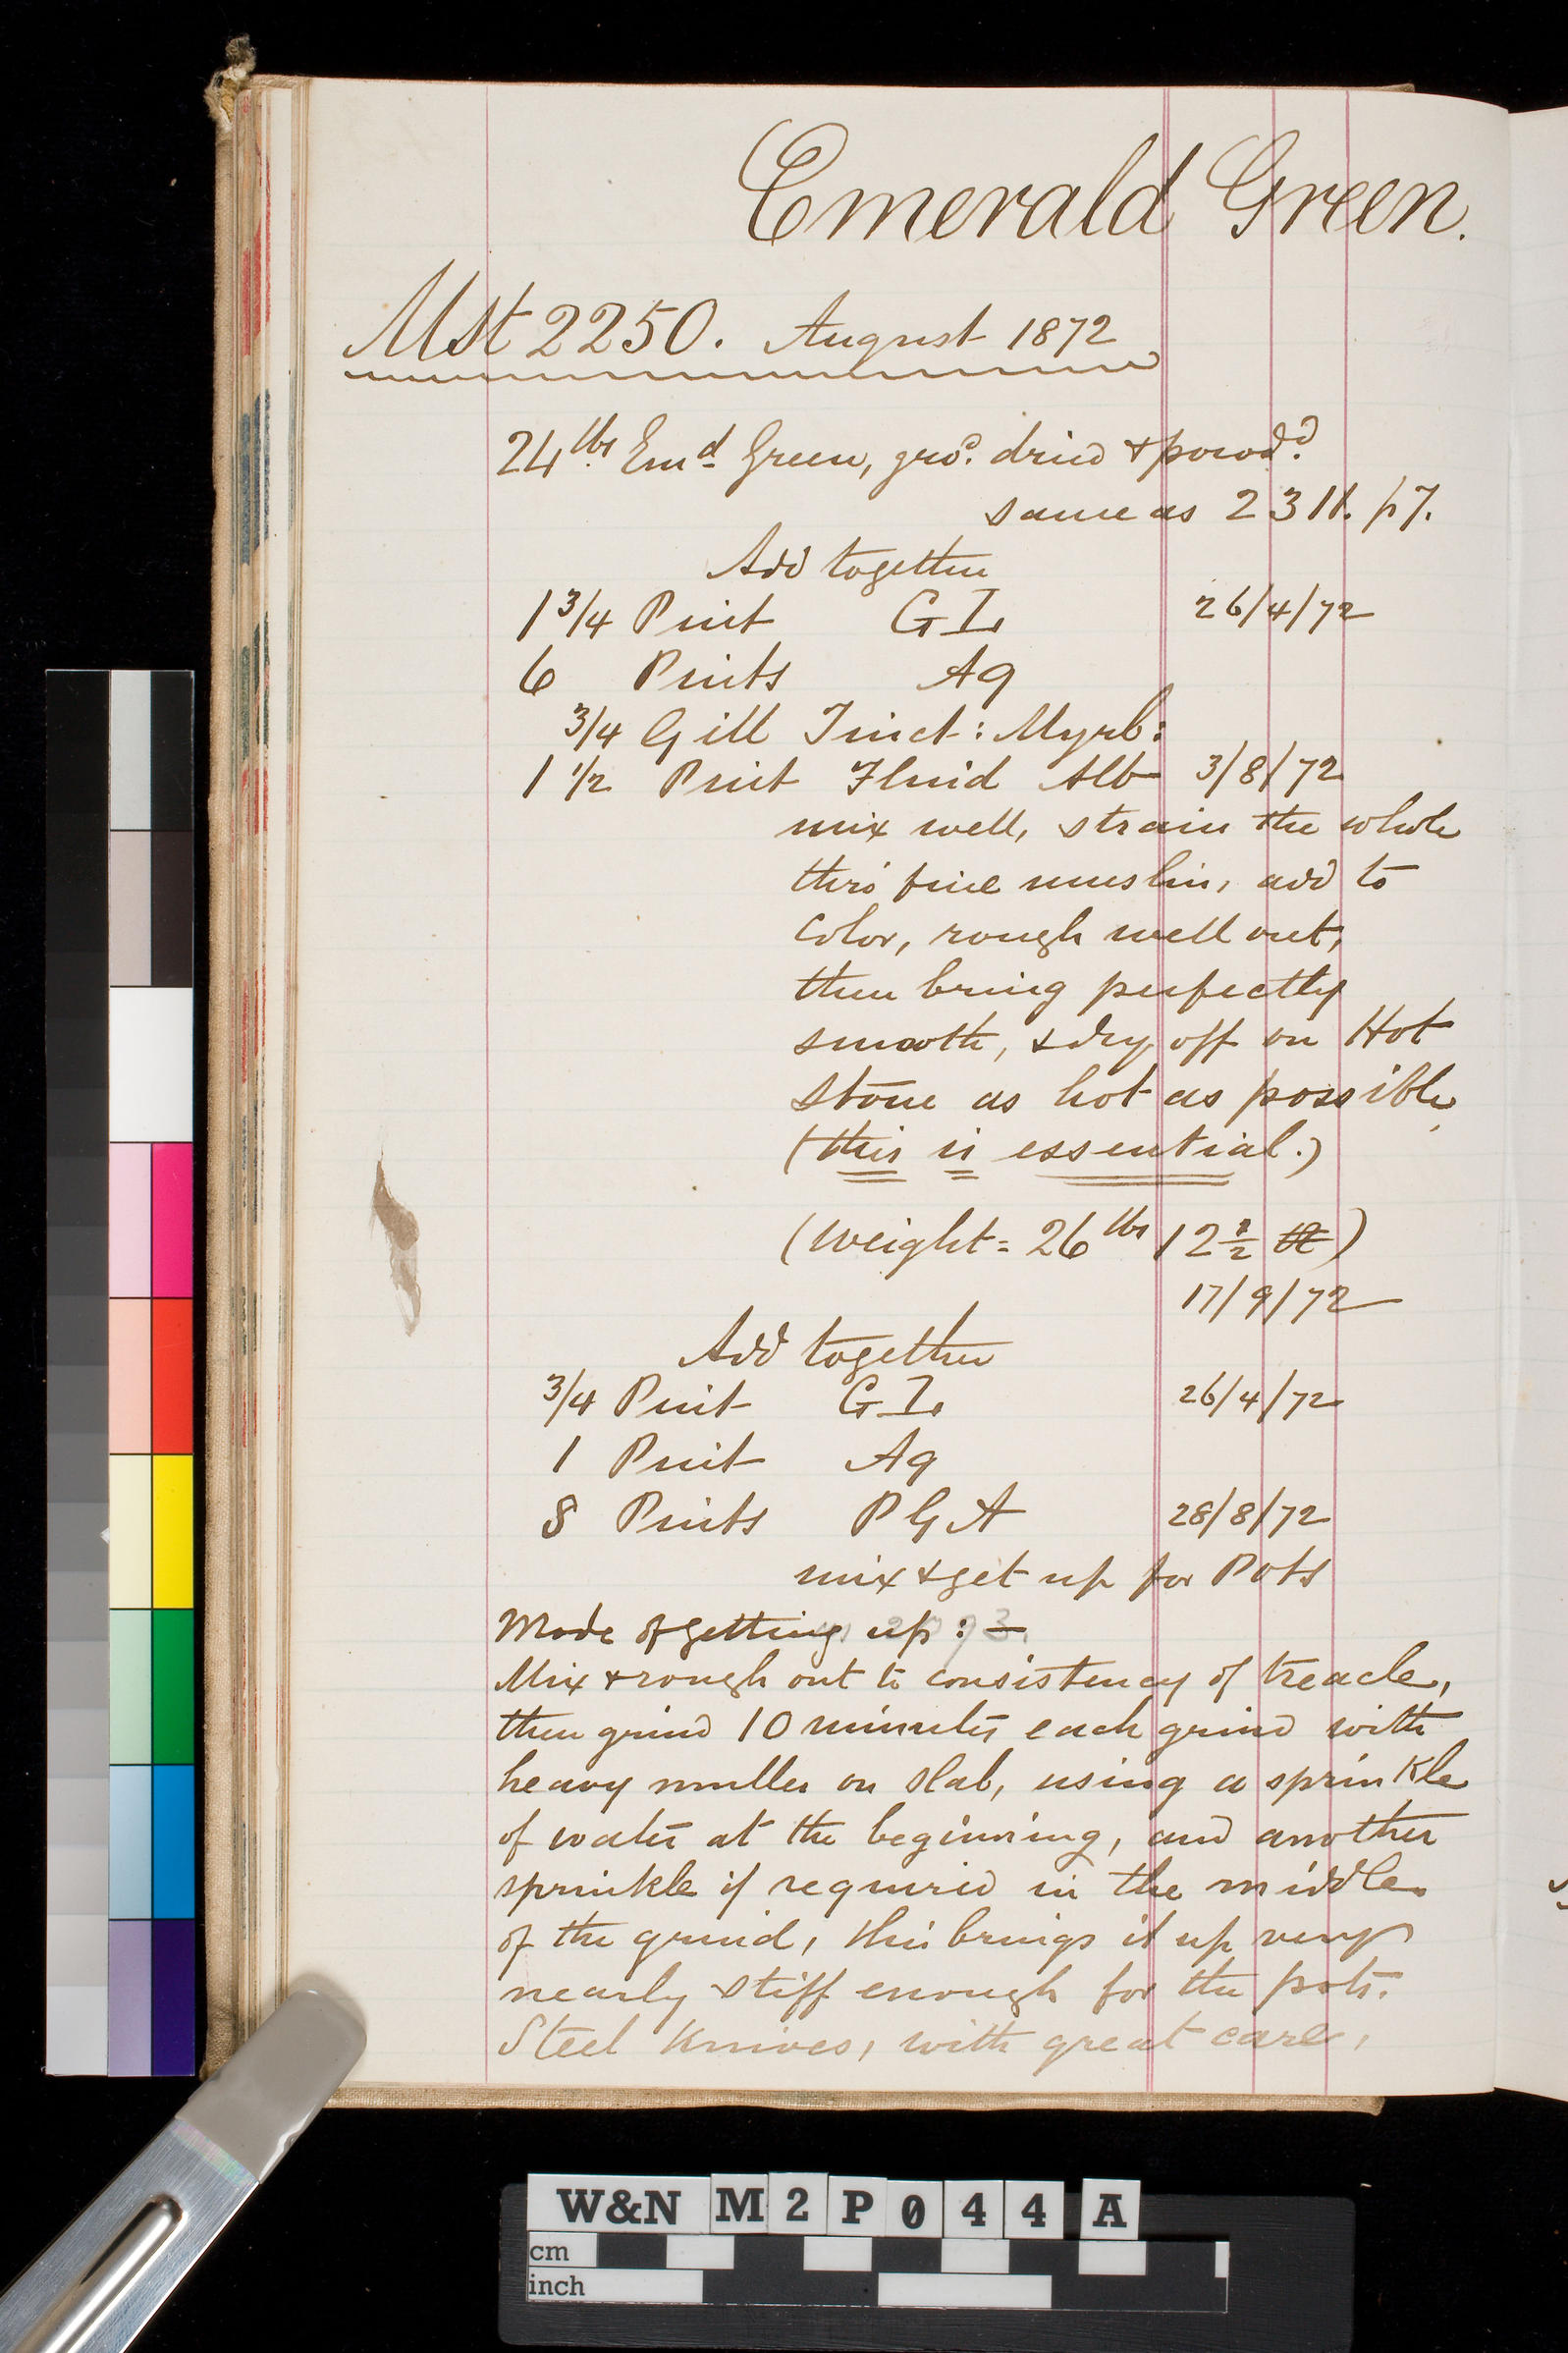 Emerald Green.
Mst 2250. August 1872
24 lbs Emd Green, gro.d dried & powd.d
same as 2311. p7.
Add together
1 3/4 Pint GL 26/4/72
6 Pints Aq
3/4 Gill Tinct: Myrb:
1 1/2 Pint Fluid Alb 3/8/72
mix well, strain the whole
thro' fine muslin, add to
Color, rough well out,
then bring perfectly
smooth, & dry off on Hot
Stone as hot as possible
(this is essential.)
(Weight = 26 lbs 12 1/2)
17/9/72
Add together
3/4 Pint GL 26/4/72
1 Pint Aq
8 Pints PGA 28/8/72
mix & get up for Pots
Mode of getting up : —
Mix & rough out to consistency of treacle,
then grind 10 minutes each grind with
heavy muller on slab, using a sprinkle
of water at the beginning, and another
sprinkle if required in the middle
of the grind, this brings it up very
nearly stiff enough for the pots.
Steel Knives, with great care,
W&N M2P044A
cm
inch